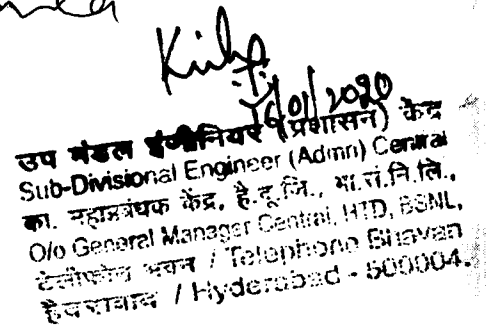 16/01/2020
उप मंडल इंजीनियर (प्रशासन) केंद्र
Sub-Divisional Engineer (Admn) Central
का. महाप्रबंधक केंद्र, है.दू.जि., भा.सं.नि.लि.,
O/o General Manager Central, HTD, BSNL,
टेलीफोन भवन / Telephone Bhavan
हैदराबाद / Hyderabad - 500004.